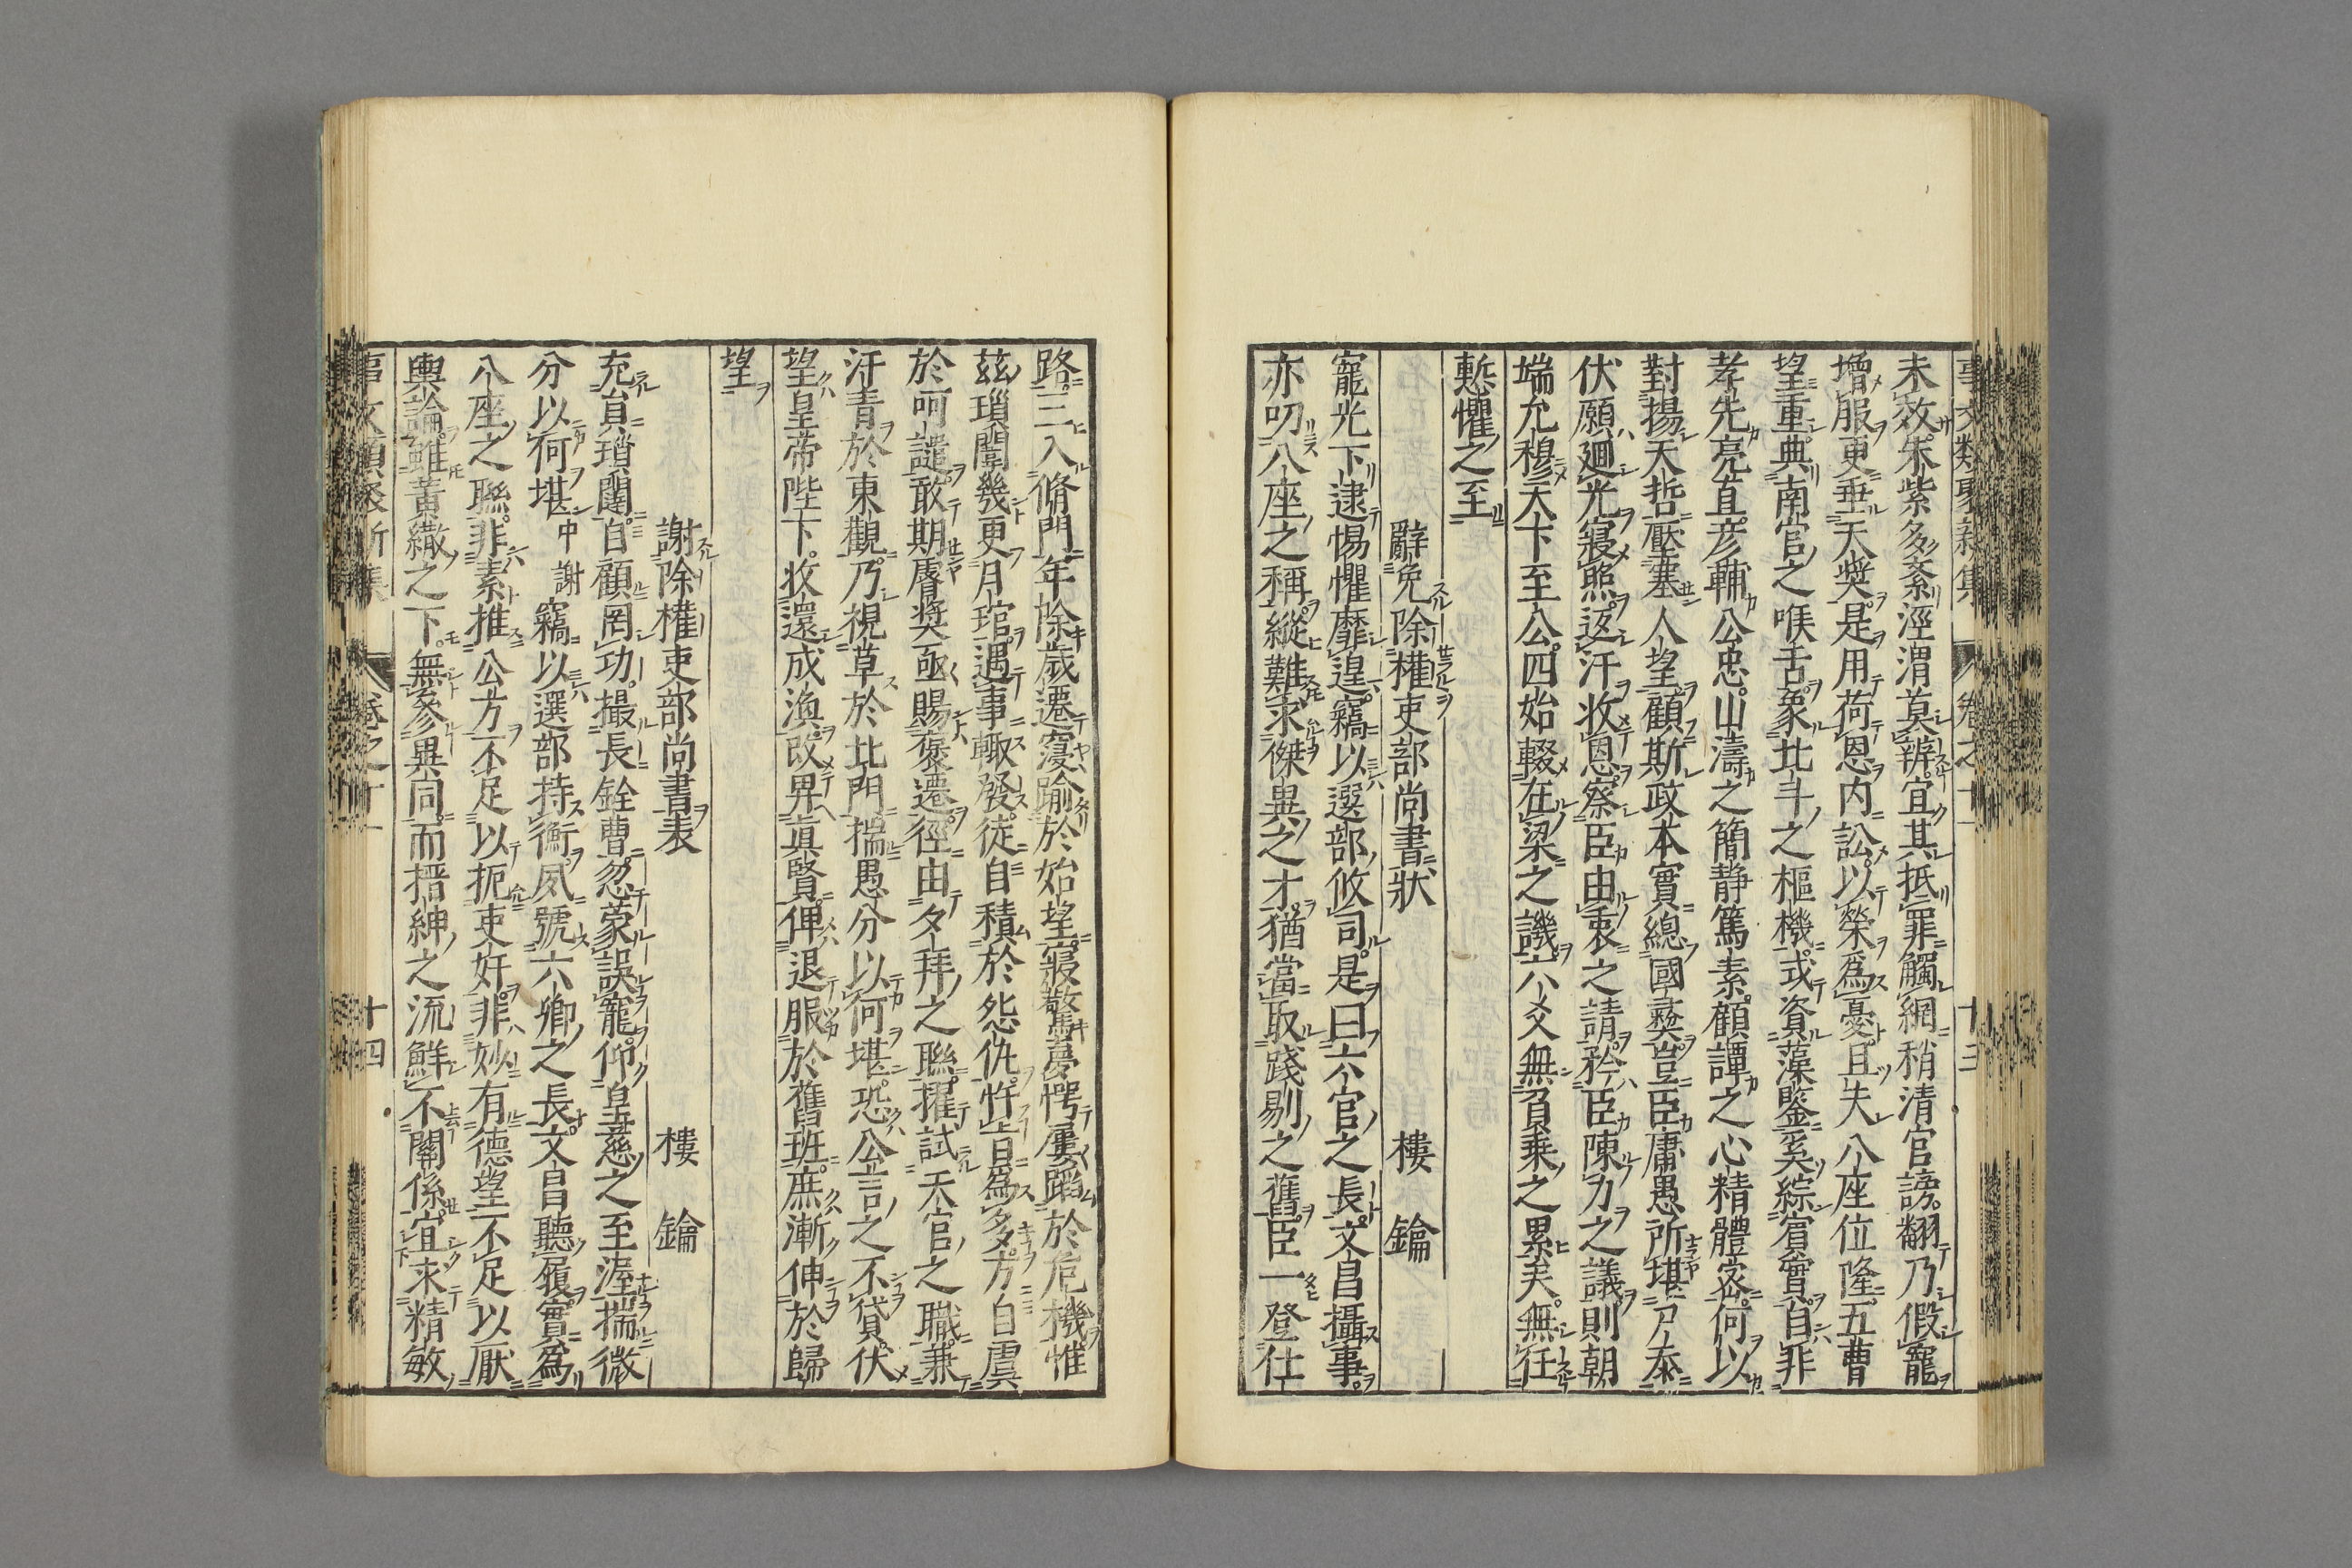 事文類聚新集 卷之十一 十三
未效朱紫多紊涇渭莫辨宜其抵罪觸網稍清官謗翻乃假寵
增服更垂天奬是用荷恩内訟以榮爲憂且夫八座位隆五曹
望重典南宮之喉舌象北斗之樞機或資藻鑒奚綜賔實自非
孝先亮直彦輔公忠山濤之簡静篤素顧譚之心精體宻何以
對揚天哲厭塞人望顧斯政本實總國彞豈臣庸愚所堪尸忝
伏願廻光寢照返汗收恩察臣由衷之請矜臣陳力之議則朝
端允穆天下至公四始輟在梁之譏六爻無負乗之累矣無任
慙懼之至
辭免除權吏部尚書狀 樓 鑰
寵光下逮惕懼靡遑竊以選部攸司是曰六官之長文昌攝事
亦叨八座之稱縱難求傑異之才猶當取踐剔之舊臣一登仕
路三入脩門年除歳遷寖踰於始望寢驚夢愕屢蹈於危機惟
兹瑣闈幾更月琯遇事輙發徒自積於怨仇忤旨爲多方自虞
於呵譴敢期膺奬亟賜褒遷徑由夕拜之聯擢試天官之職兼
汗青於東觀乃視草於北門揣愚分以何堪恐公言之不貸伏
望皇帝陛下收還成渙改畀眞賢俾退服於舊班庶漸伸於歸
望
謝除權吏部尚書表 樓 鑰
充貟瑣闥自顧罔功撮長銓曹忽蒙誤寵仰皇慈之至渥揣微
分以何堪中謝竊以選部持衡夙號六卿之長文昌聽履實為
八座之聯非素推公方不足以扼吏奸非妙有德望不足以厭
輿論雖黄繖之下無參異同而搢紳之流鮮不闗係宜求精敏
事文類聚新集 卷之十一 十四